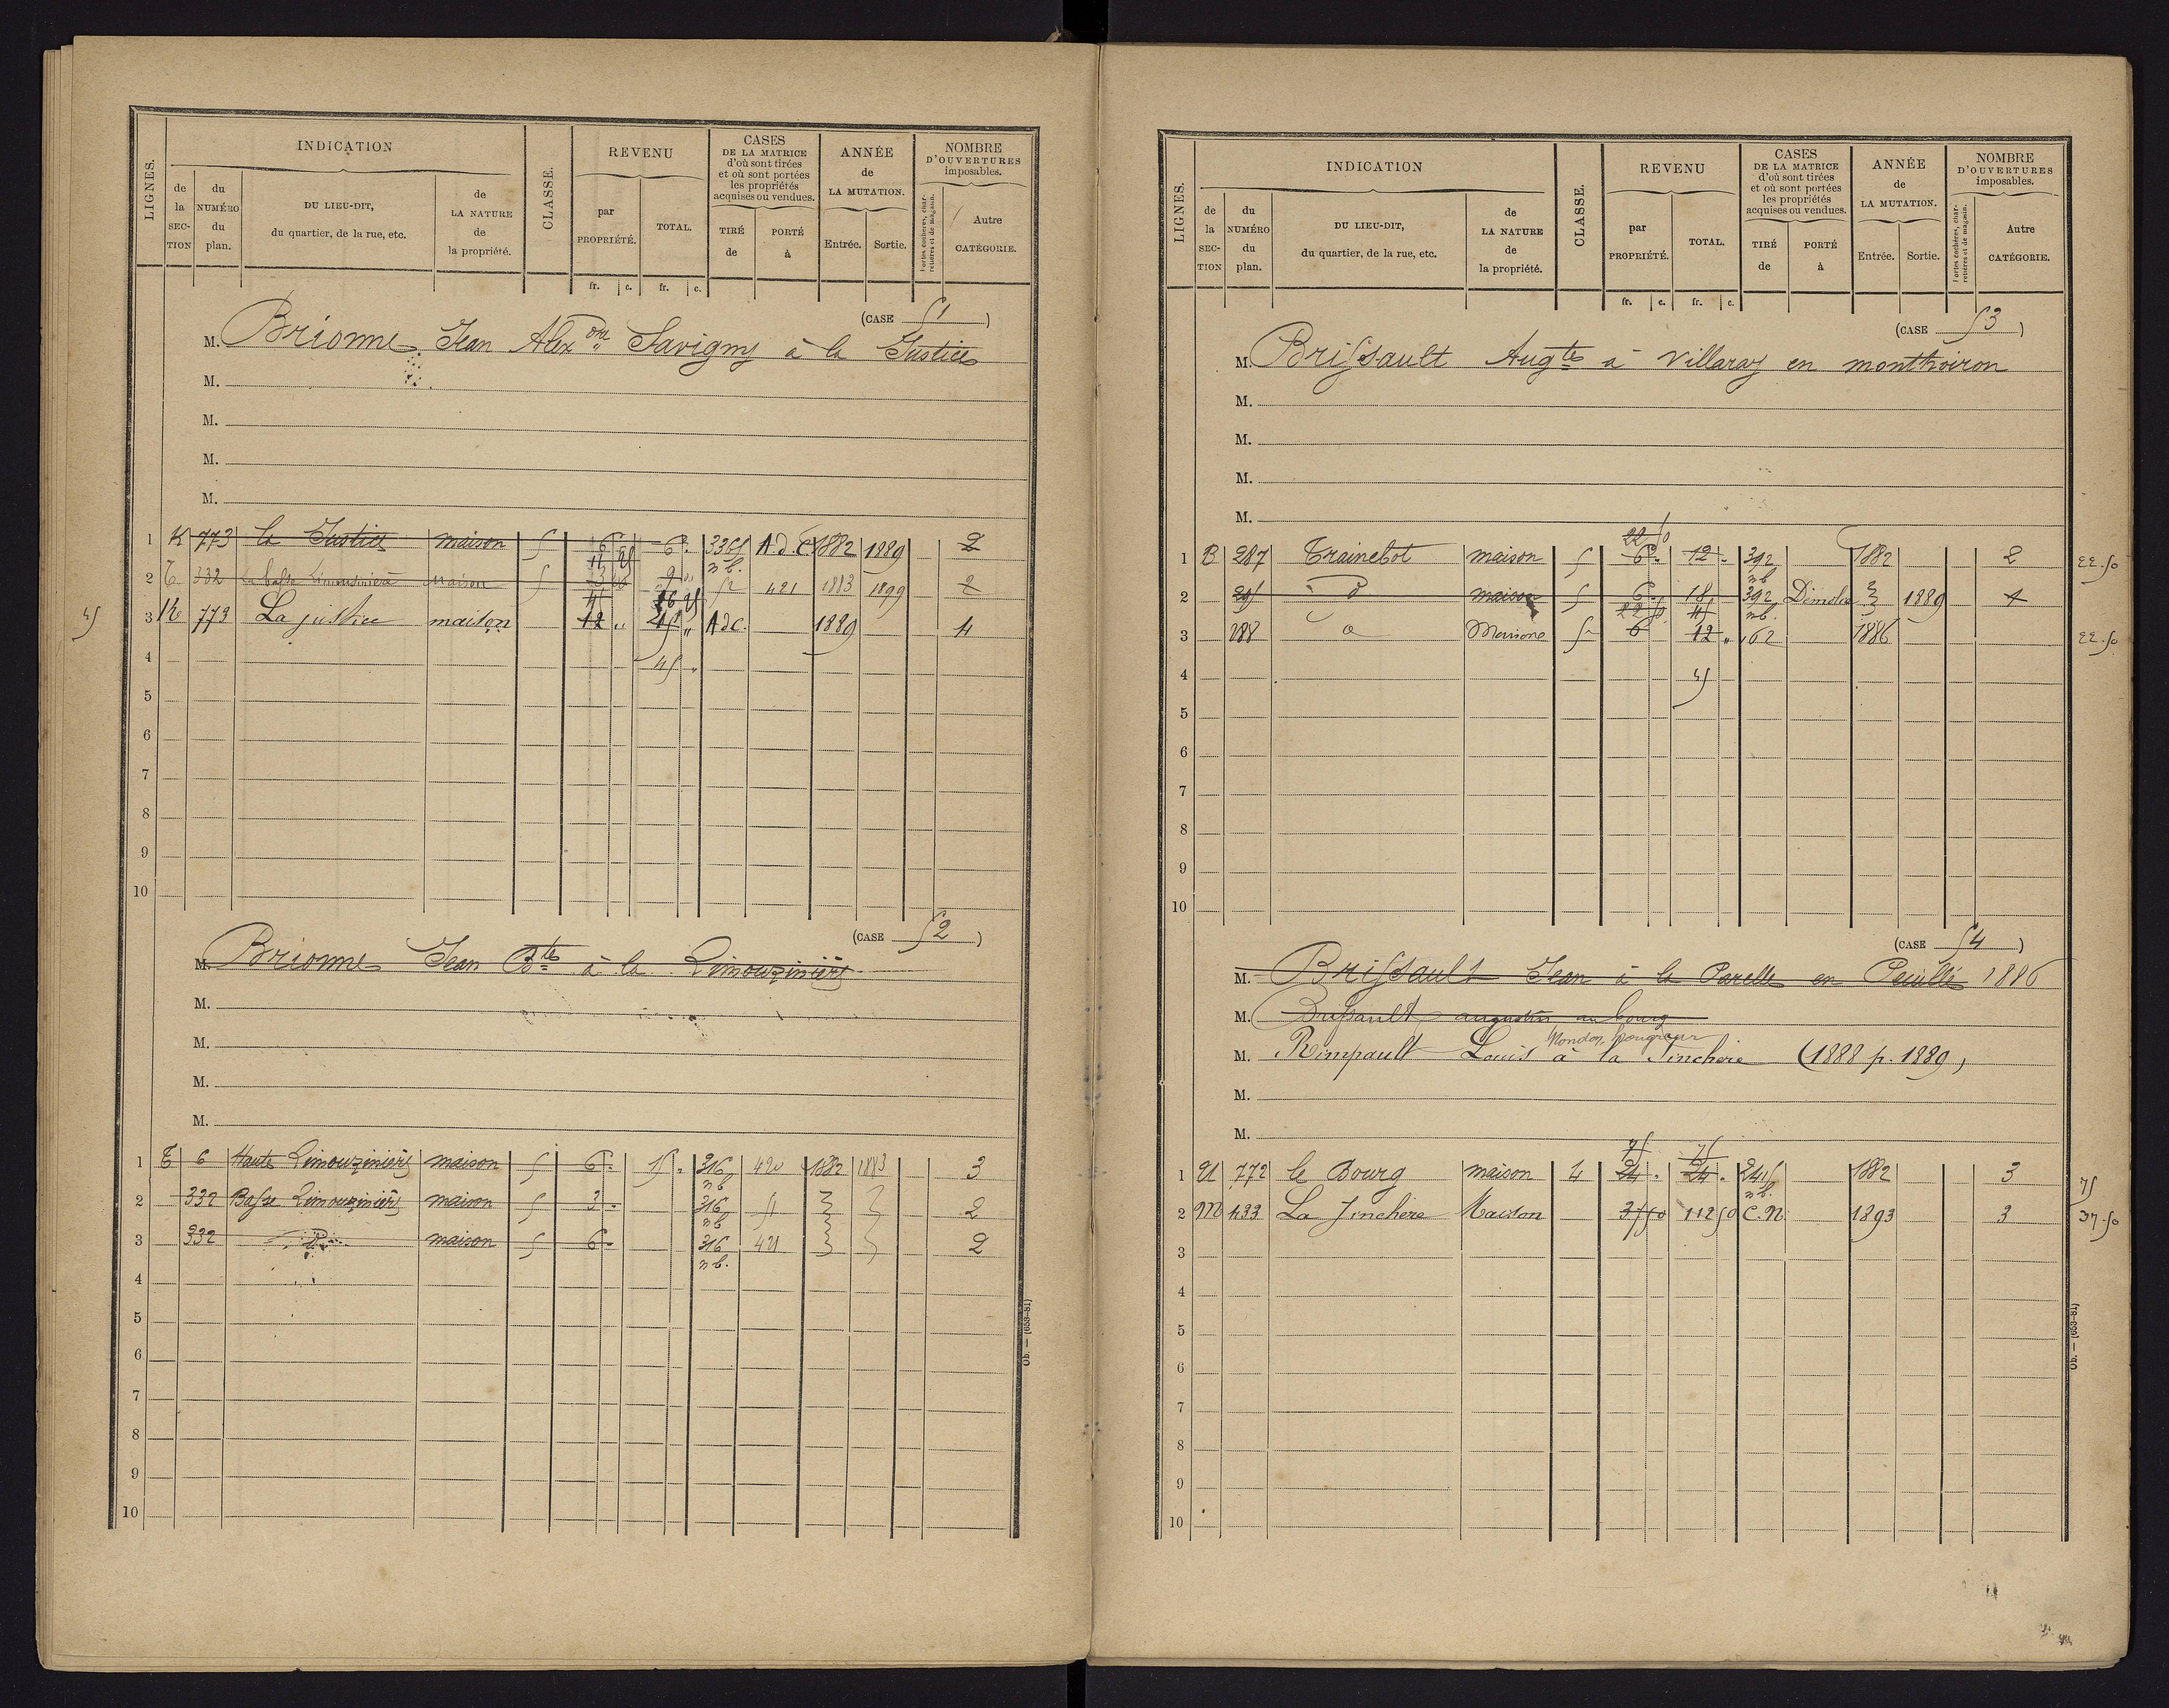 LIGNES. INDICATION CLASSE. REVENU CASES DE LA MATRICE d'où sont tirées et où sont portées les propriétés acquises ou vendues. ANNÉE de LA MUTATION. NOMBRE D'OUVERTURES imposables.
de la SECTION du NUMÉRO du plan. DU LIEU-DIT, du quartier, de la rue, etc. de LA NATURE de la propriété. par PROPRIÉTÉ. TOTAL. TIRÉ de PORTÉ à Entrée. Sortie. Portes cochères, charretières et de magasin. Autre CATÉGORIE.
fr. c. fr. c.
(CASE 51)
M. Brionne Jean Alexdre Savigny à la Justice
M.
M.
M.
M.
1 K 773 la Justice maison 5 6 6 3365 nb. A.d.C 1882 1889 2
2 E 332 la basse Limousinière maison 5 3 9 52 421 1883 1899 2
45 3 K 773 La justice maison 12 " A d C. 1889 4
4 45 "
5
6
7
8
9
10
(CASE 52)
M. Brionne Jean Bte à la Limouzinière
M.
M.
M.
M.
1 E 6 Haute Limouzinière maison 5 6 15 316 nb 420 1882 1883 3
2 332 Basse Limouzinière maison 5 3 316 nb 51 2
3 332 do maison 5 6 316 nb. 421 2
4
5
6
7
8
9
10
Ob. — (653-81)
LIGNES. INDICATION CLASSE. REVENU CASES DE LA MATRICE d'où sont tirées et où sont portées les propriétés acquises ou vendues. ANNÉE de LA MUTATION. NOMBRE D'OUVERTURES imposables.
de la SECTION du NUMÉRO du plan. DU LIEU-DIT, du quartier, de la rue, etc. de LA NATURE de la propriété. par PROPRIÉTÉ. TOTAL. TIRÉ de PORTÉ à Entrée. Sortie. Portes cochères, charretières et de magasin. Autre CATÉGORIE.
fr. c. fr. c.
(CASE 53)
M. Brissault Augte à Villaray en monthoiron
M.
M.
M.
M.
22 50
1 B 287 Trainebot maison 5 6 12 392 nb 1882 2 22.50
2 291 do maison 5 6 18 392 nb. Démolie 1889 1
22 50 45
3 288 d Maison 5 6 12 " 62 1886 22.50
4 45
5
6
7
8
9
10
(CASE 54)
M. Brissault Jean à la Parelle en Leuillé 1886
M. Brissault augustin au bourg
M. Rimpault Louis à la Jinchère (1888 p. 1889)
M.
M.
75 75
1 U 772 le Bourg maison 4 24 24 245 nb. 1882 3 75
2 M 433 La Jinchère Maison 37 50 112 50 C.N. 1893 3 37.50
3
4
5
6
7
8
9
10
Ob. — (653-81)